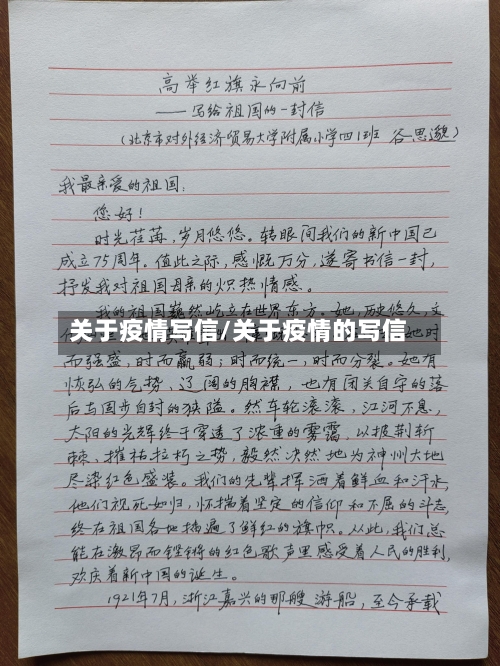 高举红旗永向前
——写给祖国的一封信
(北京市对外经济贸易大学附属小学四1班 谷思邈)
我最亲爱的祖国:
您好!
时光荏苒,岁月悠悠。转眼间我们的新中国已
成立75周年。值此之际,感慨万分,遂寄书信一封,
抒发我对祖国母亲的炽热情感。
我的祖国巍然屹立在世界东方。她,历史悠久,文
关于疫情写信/关于疫情的写信
她时
而强盛,时而羸弱;时而统一,时而分裂。她有
恢弘的气势、辽阔的胸襟,也有闭关自守的落
后与固步自封的狭隘。然车轮滚滚,江河不息,
太阳的光辉终于穿透了浓重的雾霭,以披荆斩
棘、摧枯拉朽之势,毅然决然地为神州大地
尽染红色盛装。我们的先辈挥洒着鲜血和汗水,
他们视死如归,怀揣着坚定的信仰和不屈的斗志,
终在祖国各地插遍了鲜红的旗帜。从此,我们总
能在激昂而铿锵的红色歌声里感受着人民的胜利,
欢庆着新中国的诞生。
1921年7月,浙江嘉兴的那艘游船,至今承载